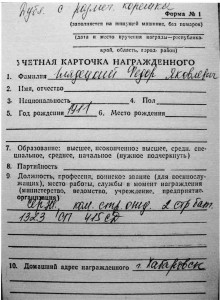 Форма № 1
(заполняется на пишущей машине, без помарок)
(дата и место вручения награды—республика-
край, область, город, район)
УЧЕТНАЯ КАРТОЧКА НАГРАЖДЕННОГО
1. Фамилия Федор Яковлевич
2. Имя, отчество
3. Национальность 4. Пол
5. Год рождения 1911 6. Место рождения
7. Образование: высшее, незаконченное высшее, среднее, спе-
циальное, среднее, начальное (нужное подчеркнуть)
8. Партийность
9. Должность, профессия, воинское звание (для военнослу-
жащих), место работы, службы в момент награждения
(министерство, ведомство, учреждение, предприятие,
организация)
ком. стр. отд. 2 стр бат.
1323 СП 415 СД
10. Домашний адрес награжденного г. Хабаровск